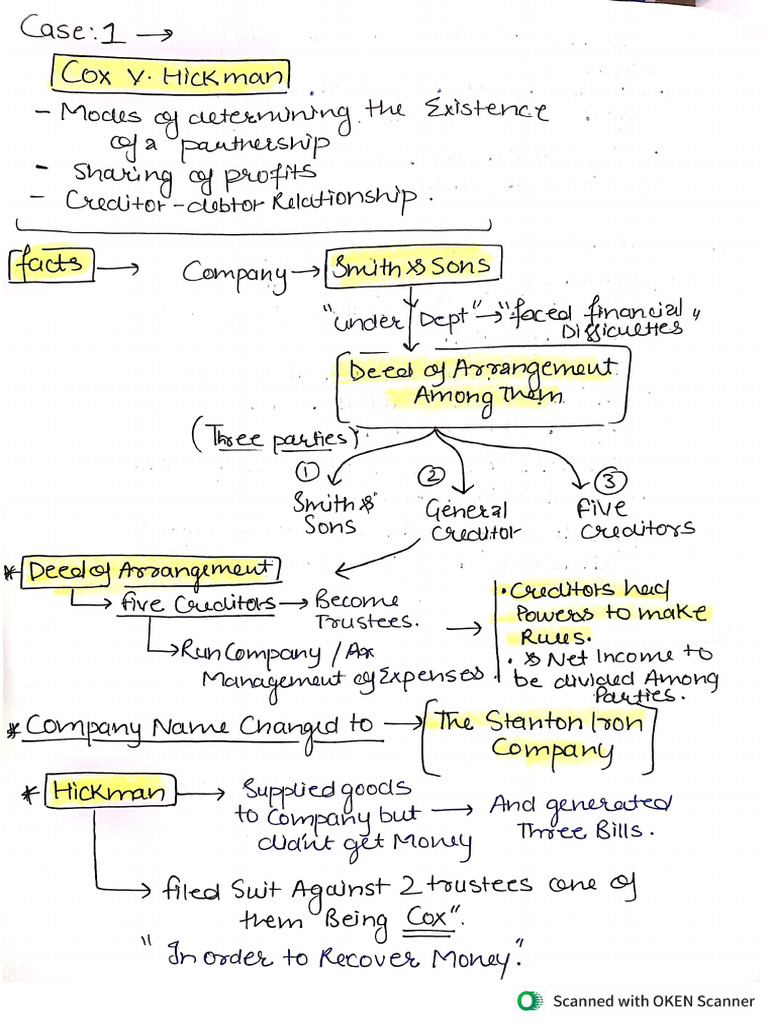 Case: 1 →
Cox v. Hickman
- Modes of determining the Existence
of a partnership
- Sharing of profits
- Creditor-debtor Relationship.
facts → Company → Smith & Sons
"under Dept" → "faced financial
Difficulties"
Deed of Arrangement
Among Them
(Three parties)
① ② ③
Smith & General five
Sons Creditor creditors
* Deed of Arrangement
→ five Creditors → Become
Trustees.
→ Run Company /
Management of Expenses.
→ • Creditors had
Powers to make
Rules.
• & Net Income to
be divided Among
Parties.
* Company Name Changed to → The Stanton Iron
Company
* Hickman → Supplied goods
to Company but → And generated
didn't get Money Three Bills.
→ filed Suit Against 2 trustees one of
them Being Cox".
"In order to Recover Money."
Scanned with OKEN Scanner